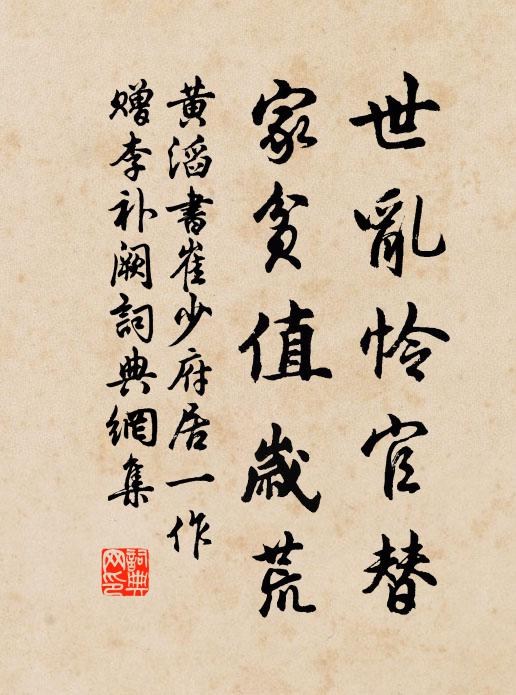 世亂怜官替
家贫值歲荒
黄滔書崔少府居一作
赠李补阙詞典網集
詞典网印